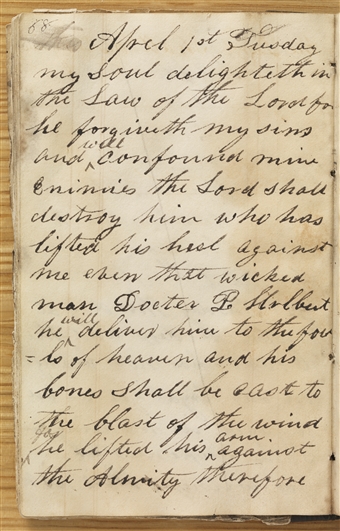 88
this April 1st Tuesday
my Soul delighteth in
the Law of the Lord for
he forgiveth my sins
and will confound mine
Enimies the Lord shall
destroy him who has
lifted his heel against
me even that wicked
man Docter P. Hrlbut
he will deliver him to the fow
=ls of heaven and his
bones shall be cast to
the blast of the wind
for he lifted his arm against
the Almity therefore